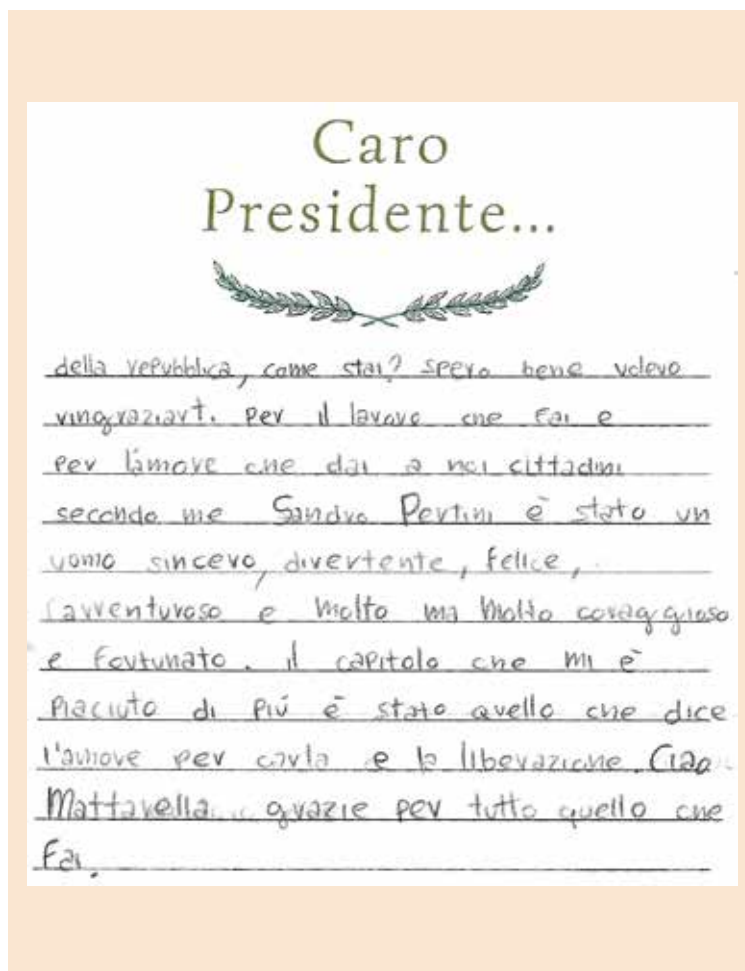 Caro
Presidente...
della repubblica, come stai? spero bene volevo
ringraziarti per il lavoro che fai e
per l'amore che dai a noi cittadini
secondo me Sandro Pertini è stato un
uomo sincero, divertente, felice,
avventuroso e molto ma molto coraggioso
e fortunato. il capitolo che mi è
piaciuto di piú è stato quello che dice
l'amore per carla e la liberazione. Ciao
Mattarella grazie per tutto quello che
fai.